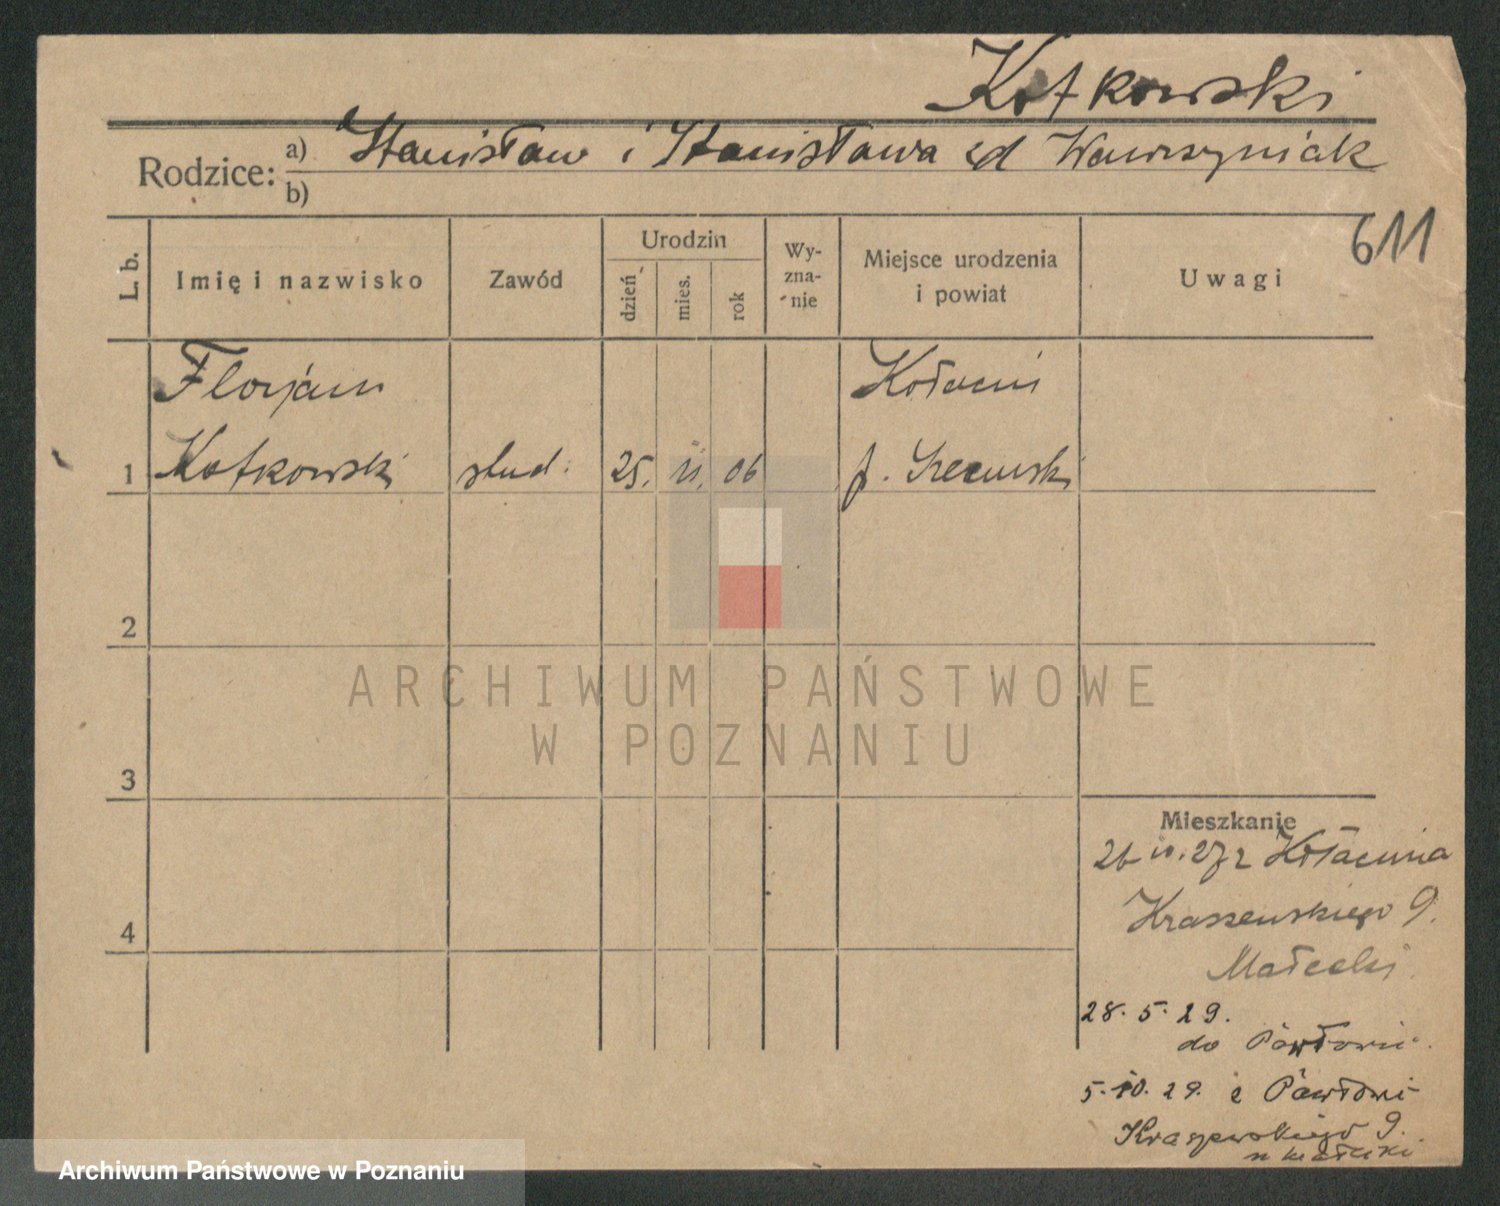 Kotkowski
Rodzice: a) Stanisław i Stanisława zd Wawrzyniak
b)
611
L. b.
Imię i nazwisko
Zawód
Urodzin
dzień
mies.
rok
Wy-
zna-
nie
Miejsce urodzenia
i powiat
Uwagi
Florjan
1 Kotkowski stud. 25. 06
2
3
4
Mieszkanie
27 z Kołacina
Kraszewskiego 9.
Małecki
28. 5. 29.
do
5. 10. 29. z
Kraszewskiego 9.
ARCHIWUM PAŃSTWOWE
W POZNANIU
Archiwum Państwowe w Poznaniu